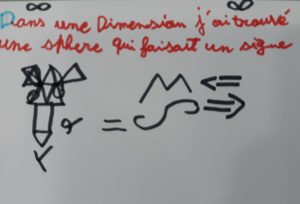 ∞ ∞
Dans une Dimension j'ai trouvé
une sphere qui faisait un signe
= M S ⇐ ⇒